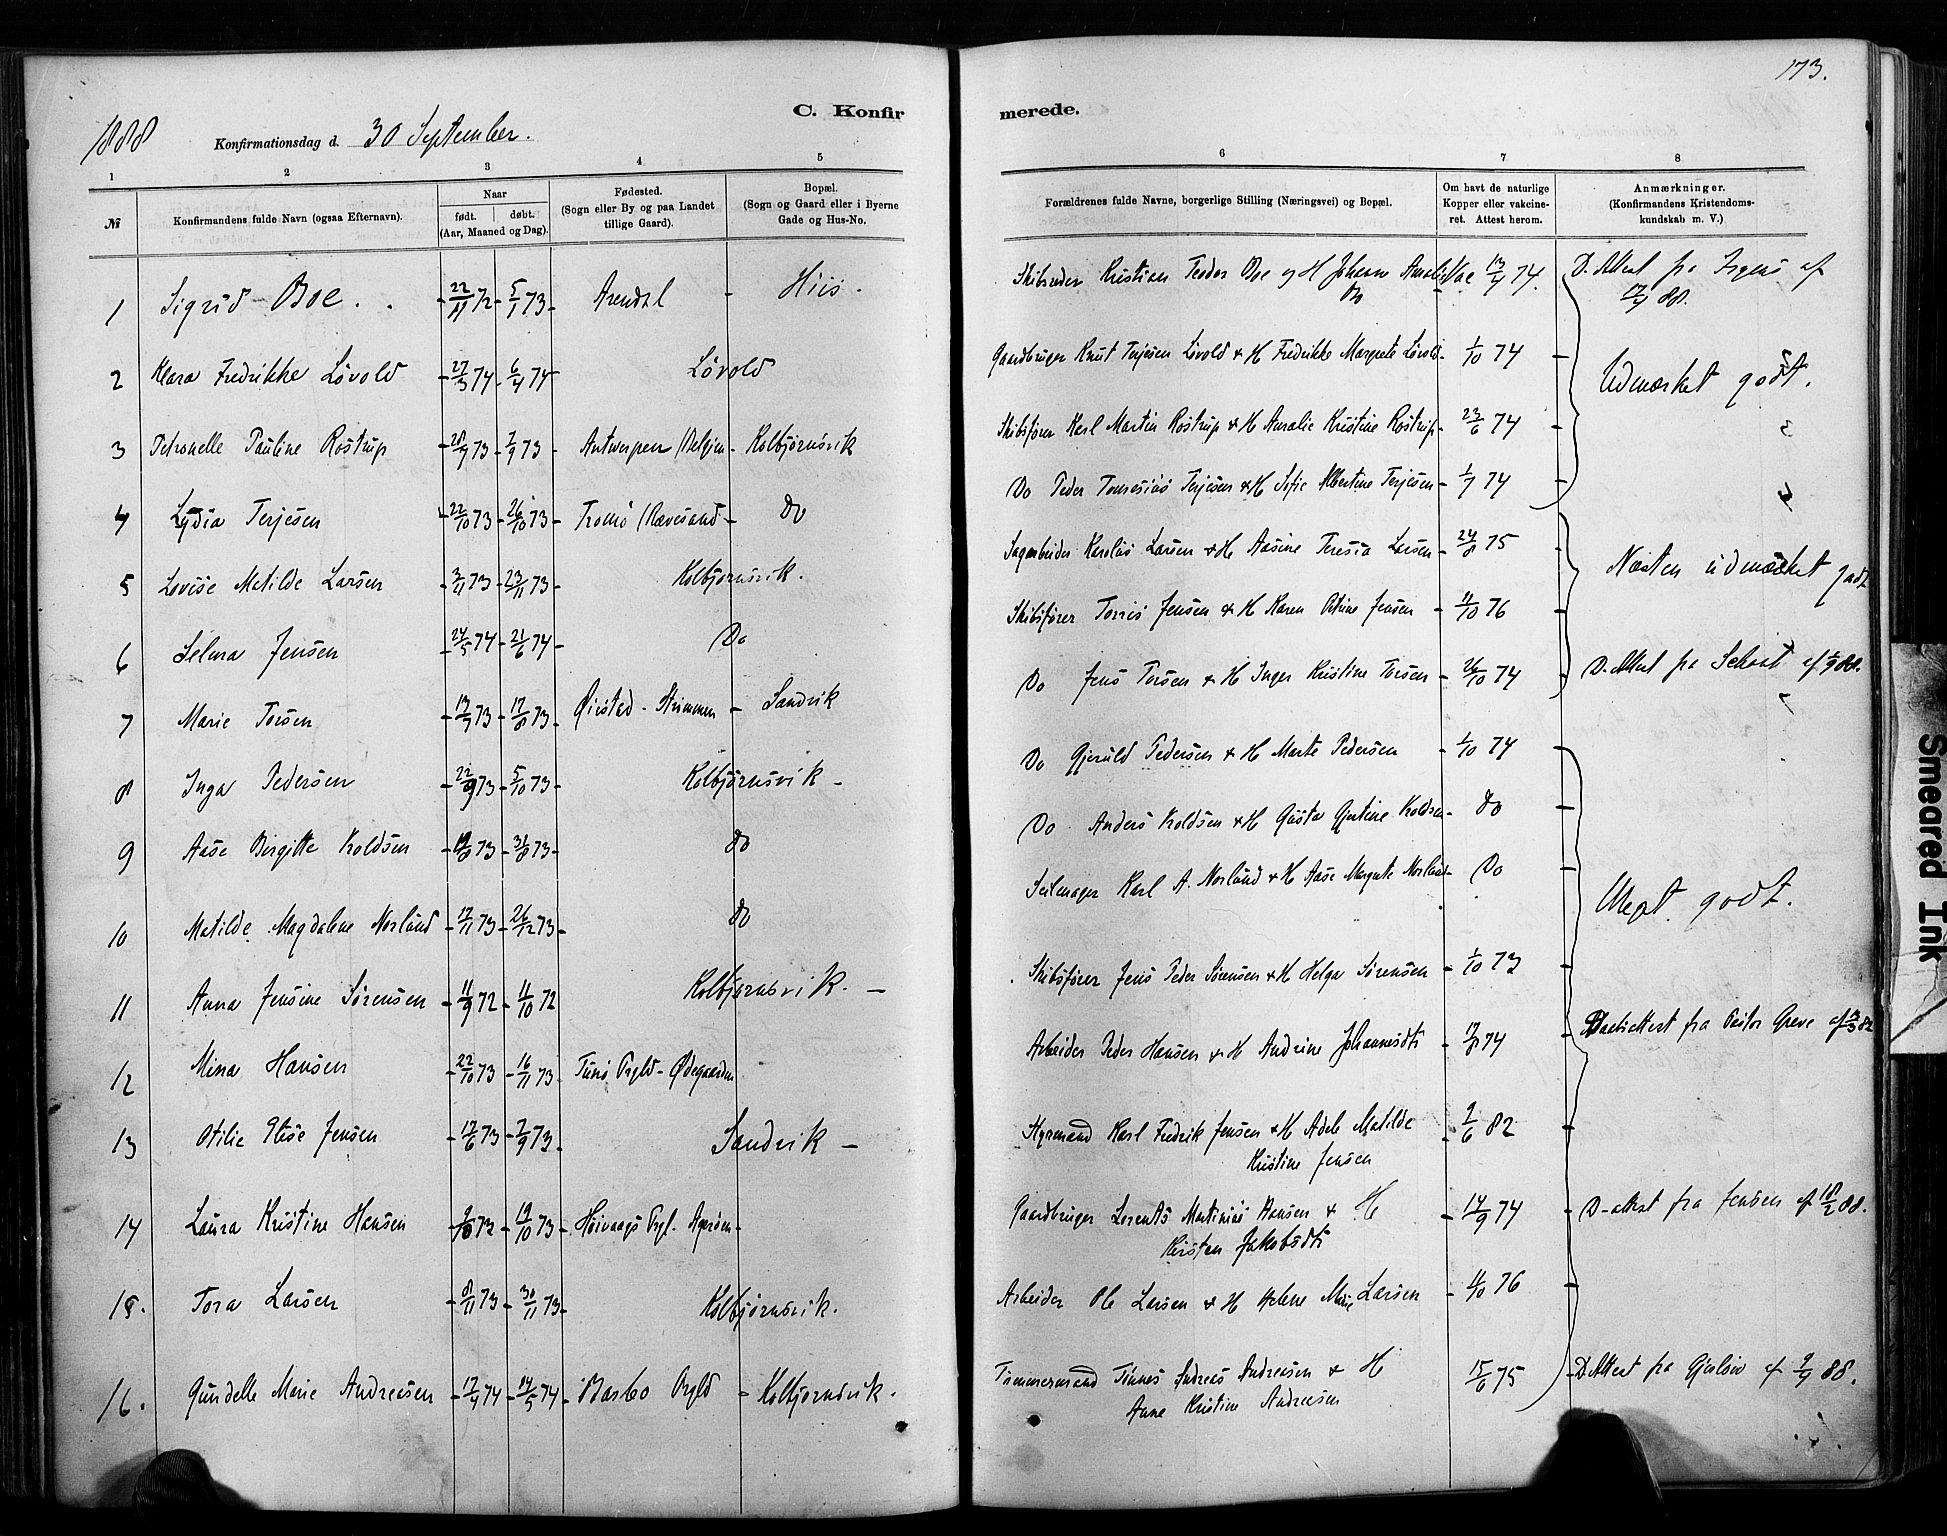 173.
C. Konfirmerede.
1888 Konfirmationsdag d. 30 September.
1 2 3 4 5 6 7 8
№
Konfirmandens fulde Navn (ogsaa Efternavn).
Naar
født. døbt.
(Aar, Maaned og Dag).
Fødested.
(Sogn eller By og paa Landet
tillige Gaard).
Bopæl.
(Sogn og Gaard eller i Byerne
Gade og Hus-No.
Forældrenes fulde Navne, borgerlige Stilling (Næringsvei) og Bopæl.
Om havt de naturlige
Kopper eller vakcine-
ret. Attest herom.
Anmærkninger.
(Konfirmandens Kristendoms-
kundskab m. V.)
1 Sigrid Boe. 22/11 72 - 5/1 73 - Arendal - Hiis. Skibsreder Kristian Teodor Boe og H Johanne Vac 13/7 74. D. Attest fra af
2 Klara Fredrikke Løvold 27/3 74 - 6/4 74 Løvold Gaardbruger Knut Terjesen Løvold & H Fredrikke Margrete Løvold - 1/10 74 - Udmærket godt.
3 Petronelle Pauline Rostrup 28/7 73 - 7/9 73 - Antwerpen - Kolbjørnsvik Skibsfører Karl Martin Rostrup & H Amalie Kristine Rostrup - 23/6 74
4 Lydia Terjesen 22/10 73 - 26/10 73 - Tromø / Rævesand - Do Do Peder Terjesen & H Sofie Albertine Terjesen - 1/7 74
5 Lovise Matilde Larsen 3/11 73 - 23/11 73 - Kolbjørnsvik. Sagarbeider Larsen & H Aasine Teresia Larsen - 24/8 75 Næsten udmærket godt
6 Selma Jensen 24/5 74 - 21/6 74 - Do Skibsfører Torris Jensen & H Karen Jensen - 11/10 76
7 Marie Torsen 13/7 73 - 17/8 73 - Øiestad - Strømmen - Sandvik Do Jens Torsen & H Inger Kristine Torsen - 26/10 74 D. Attest fra af
8 Inga Pedersen 22/9 73 - 5/10 73 - Kolbjørnsvik - Do Gjeruld Pedersen & H Marte Pedersen - 1/10 74
9 Aase Birgitte Koldsen 73 - 31/8 73 - Do Do Anders Koldsen & H Gjertine Koldsen - Do
10 Matilde Magdalene Norlund 17/11 73 - 26/12 73 - Do Seilmager Karl A. Norlund & H Aase Margrete Norlund - Do Meget godt.
11 Anna Jensine Sørensen 11/9 72 - 11/10 72 Kolbjørnsvik. - Skibsfører Jens Peder Sørensen & H Helga Sørensen - 1/10 73
12 Mina Hansen 22/10 73 - 16/11 73 - Prgld - Ødegaarden Arbeider Peder Hansen & H Andrine Johannesdt - 17/8 74 fra Pastor Greve af
13 Otilie Elise Jensen 17/6 73 - 7/9 73 - Sandvik - Styrmand Karl Fredrik Jensen & H Adele Matilde - 9/6 82
Kristine Jensen
14 Laura Kristine Hansen 73 - 19/10 73 - Høivaags Prgl. - Gaardbruger Lorents Martinius Hansen & H - 14/9 74 - D-attest fra Jensen af 18/2 88.
Kirsten Jakobsdt
15. Tora Larsen 8/11 73 - 30/11 73 - Kolbjørnsvik. Arbeider Ole Larsen & H Helene Marie Larsen - 11/10 76
16. Gundelle Marie Andreasen - 17/4 74 - 14/5 74 - Barbo Prgld - Kolbjørnsvik. Tømmermand Tønnes Andreas Andreasen & H 15/6 75 - D. Attest fra af 9/4 88.
Anne Kristine Andreasen
Smeared Ink